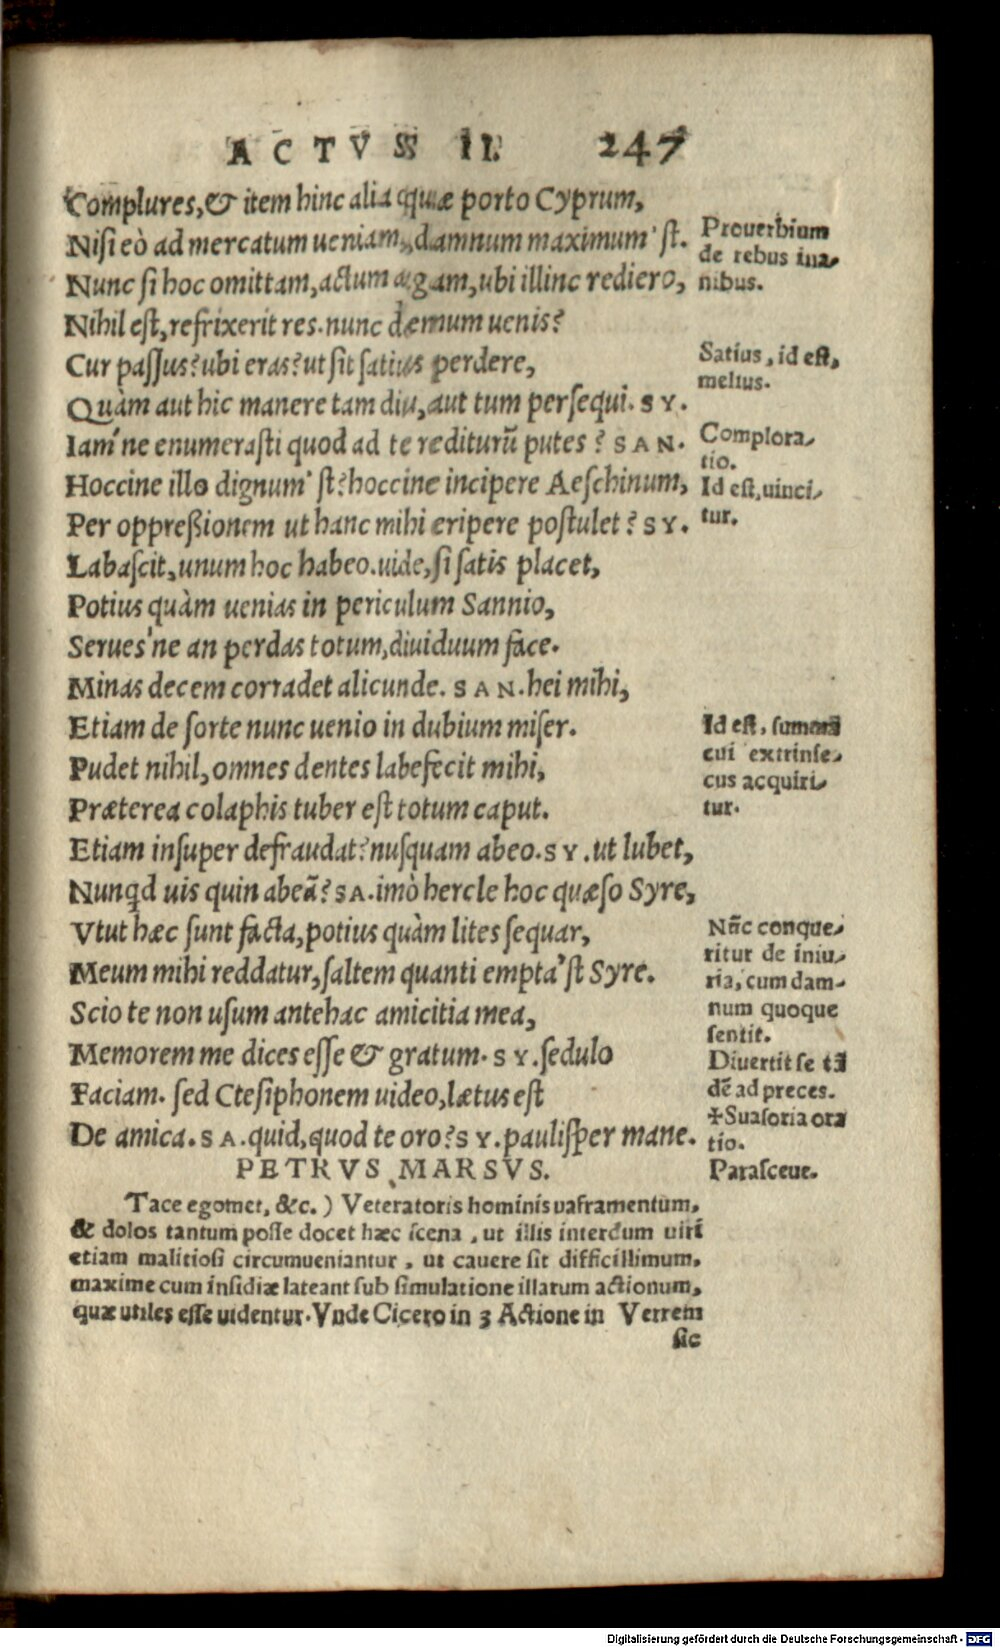 ACTVS II. 247
Complures, & item hinc alia quæ porto Cyprum,
Nisi eò ad mercatum ueniam, damnum maximum'st.
Nunc si hoc omittam, actum agam, ubi illinc rediero,
Nihil est, refrixerit res. nunc demum uenis?
Cur passus? ubi eras? ut sit satius perdere,
Quàm aut hic manere tam diu, aut tum persequi. SY.
Iam'ne enumerasti quod ad te rediturũ putes? SAN.
Hoccine illo dignum'st? hoccine incipere Aeschinum,
Per oppreßionem ut hanc mihi eripere postulet? SY.
Labascit, unum hoc habeo. uide, si satis placet,
Potius quàm uenias in periculum Sannio,
Serues'ne an perdas totum, diuiduum face.
Minas decem corradet alicunde. SAN. hei mihi,
Etiam de sorte nunc uenio in dubium miser.
Pudet nihil, omnes dentes labefecit mihi,
Præterea colaphis tuber est totum caput.
Etiam insuper defraudat? nusquam abeo. SY. ut lubet,
Nunqd uis quin abeã? SA. imò hercle hoc quæso Syre,
Vtut hæc sunt facta, potius quàm lites sequar,
Meum mihi reddatur, saltem quanti empta'st Syre.
Scio te non usum antehac amicitia mea,
Memorem me dices esse & gratum. SY. sedulo
Faciam. sed Ctesiphonem uideo, lætus est
De amica. SA. quid, quod te oro? SY. paulisper mane.
PETRVS MARSVS.
Tace egomet, &c.) Veteratoris hominis uaframentum,
& dolos tantum posse docet hæc scena, ut illis interdum uiri
etiam malitiosi circumueniantur, ut cauere sit difficillimum,
maxime cum insidiæ lateant sub simulatione illarum actionum,
quæ utiles esse uidentur. Vnde Cicero in 3 Actione in Verrem
sic
Prouerbium
de rebus ina-
nibus.
Satius, id est,
melius.
Complora-
tio.
Id est, uinci-
tur.
Id est, summã
cui extrinse-
cus acquiri-
tur.
Nũc conque-
ritur de iniu-
ria, cum dam-
num quoque
sentit.
Diuertit se tã
dẽ ad preces.
✢Suasoria ora
tio.
Parasceue.
Digitalisierung gefördert durch die Deutsche Forschungsgemeinschaft - DFG